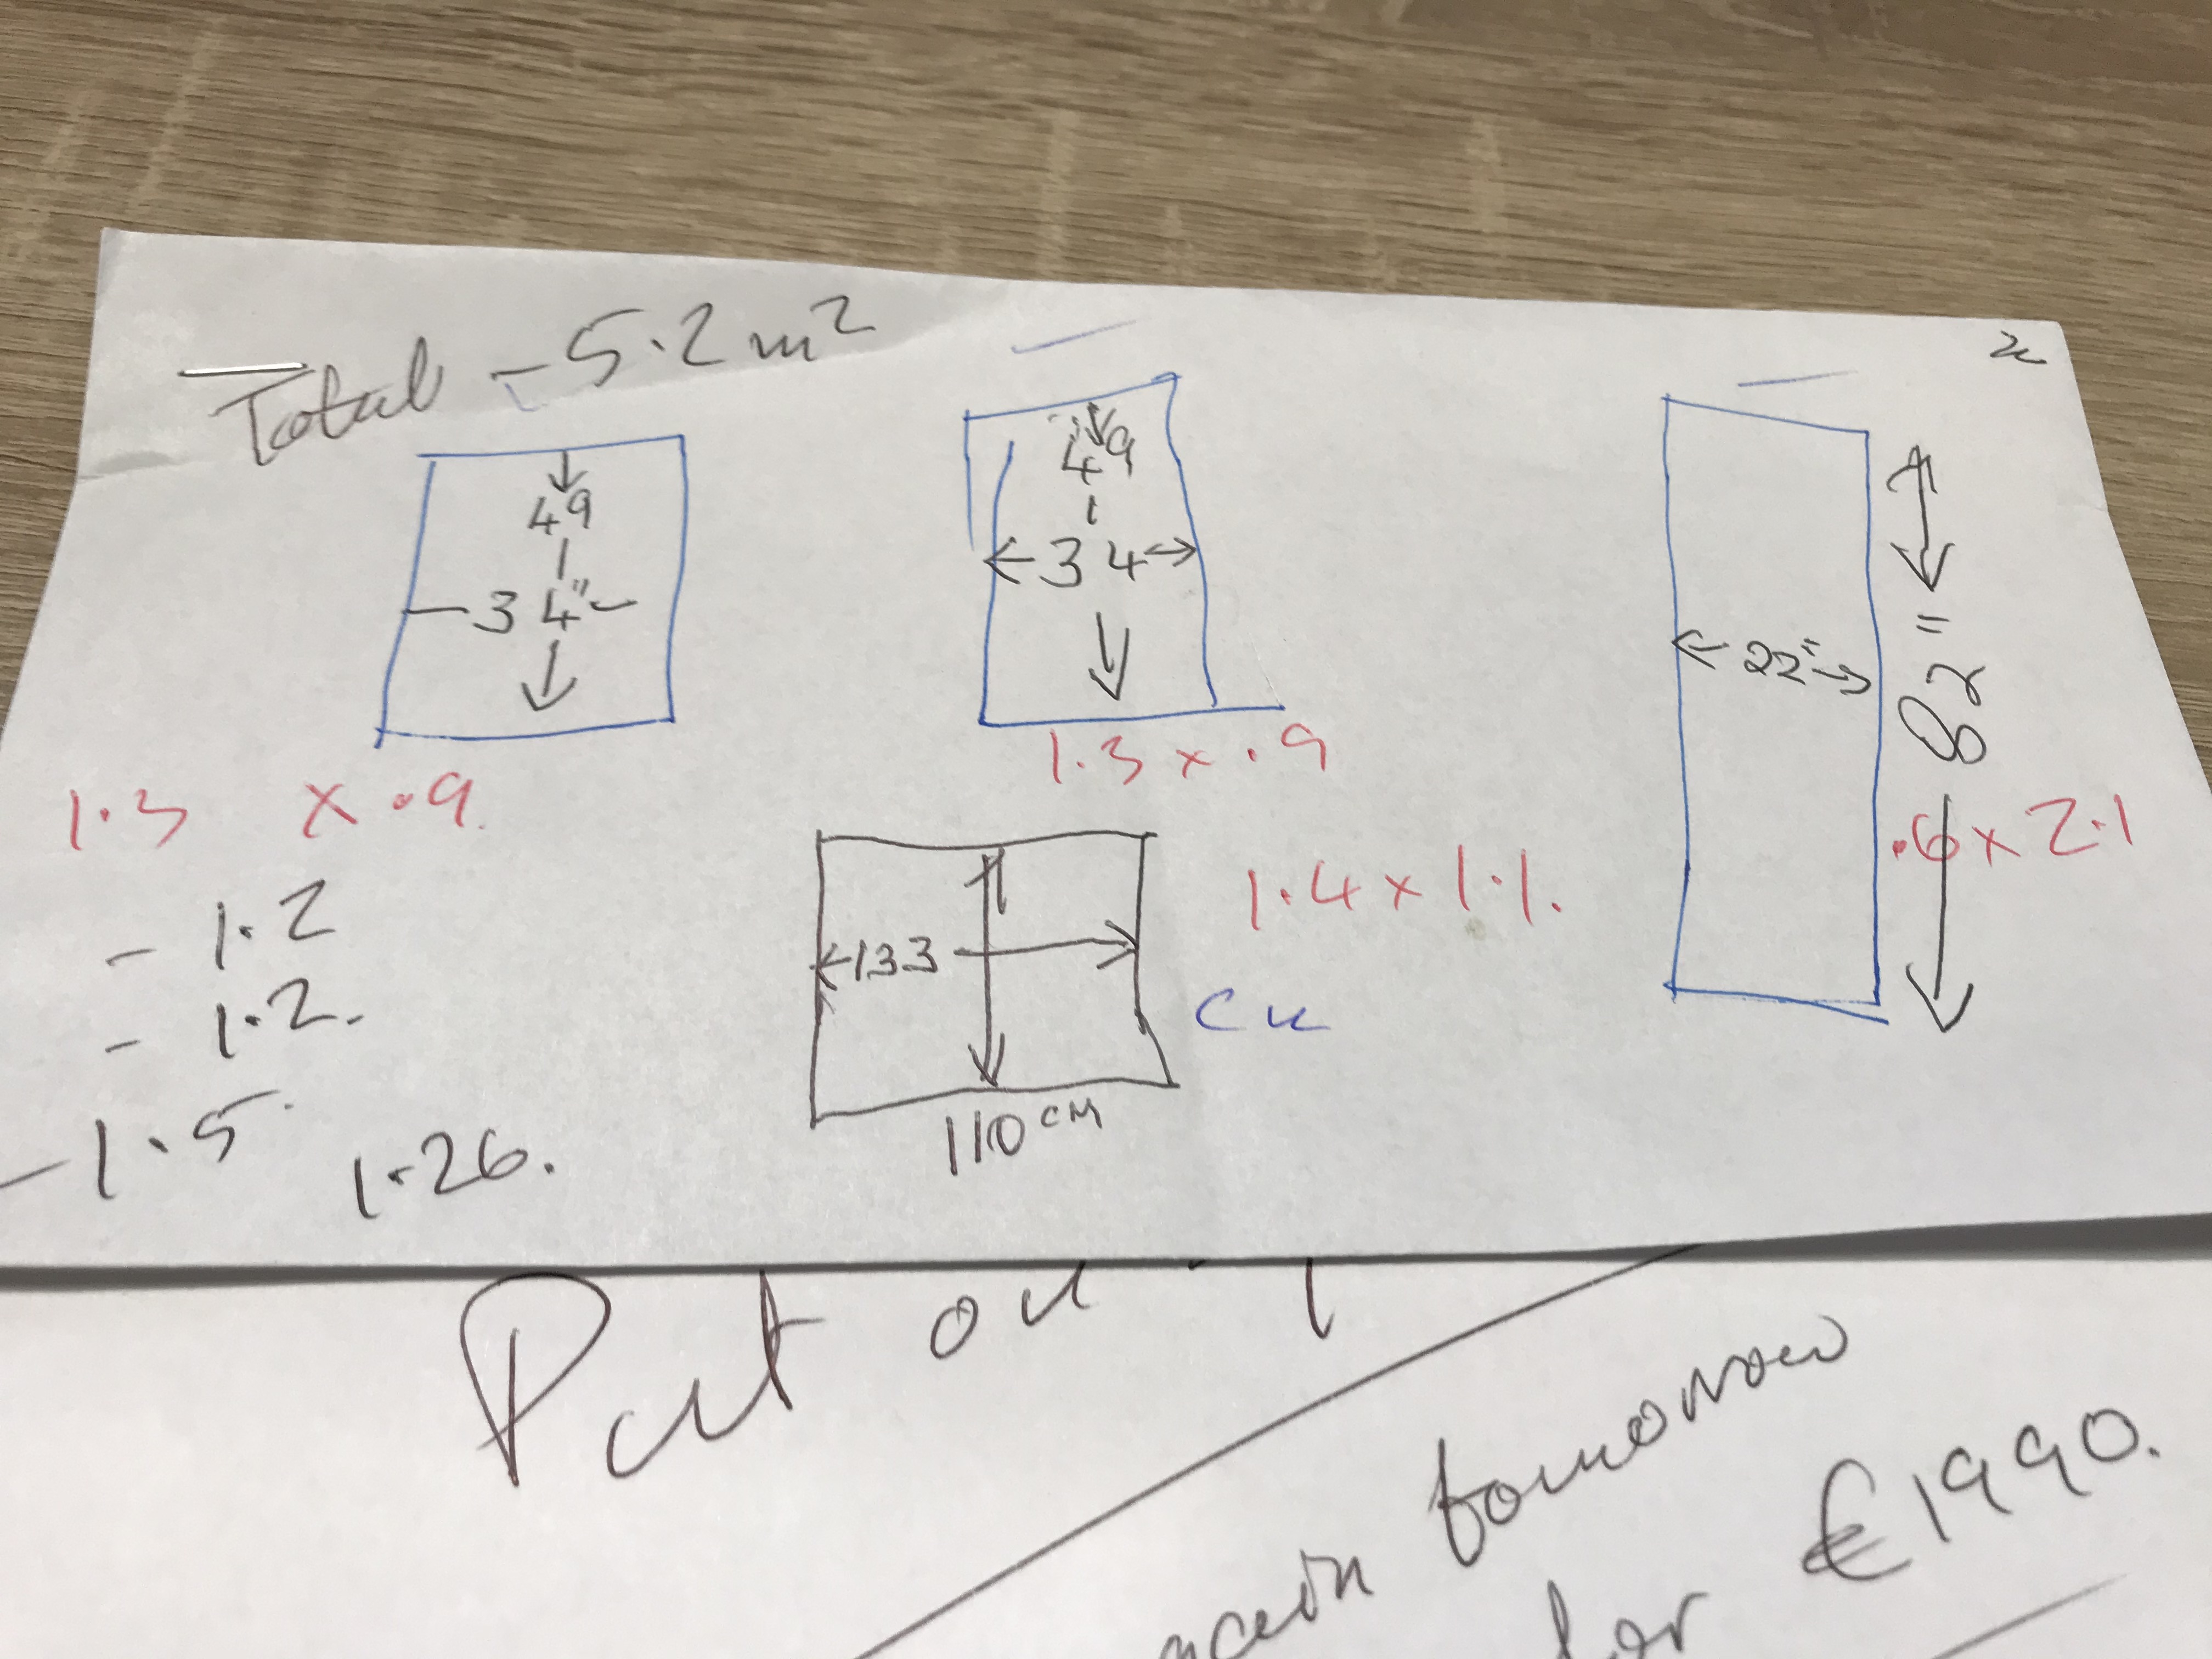 Total - 5.2 m²
49
34"
49
34
22"
82"
1.3 x .9
1.3 x .9
.6 x 2.1
1.4 x 1.1.
133
110 cm
- 1.2
- 1.2.
- 1.5
1.26.
Put on
tomorrow
for €1990.